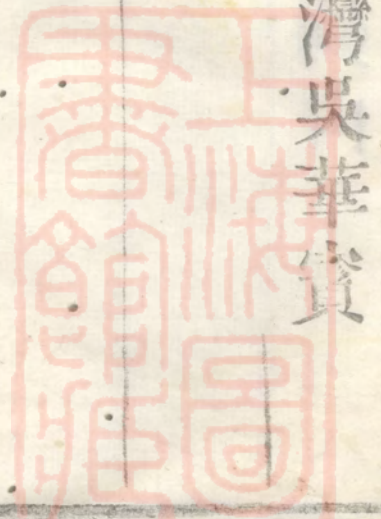 灣吳華
上海圖
書館藏